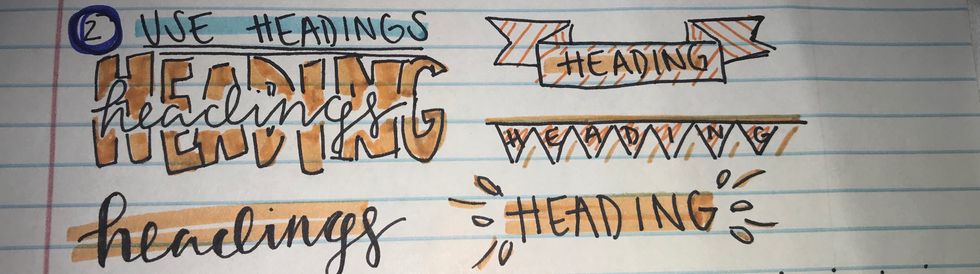 2 USE HEADINGS
HEADING
headings
HEADING
HEADING
headings
HEADING